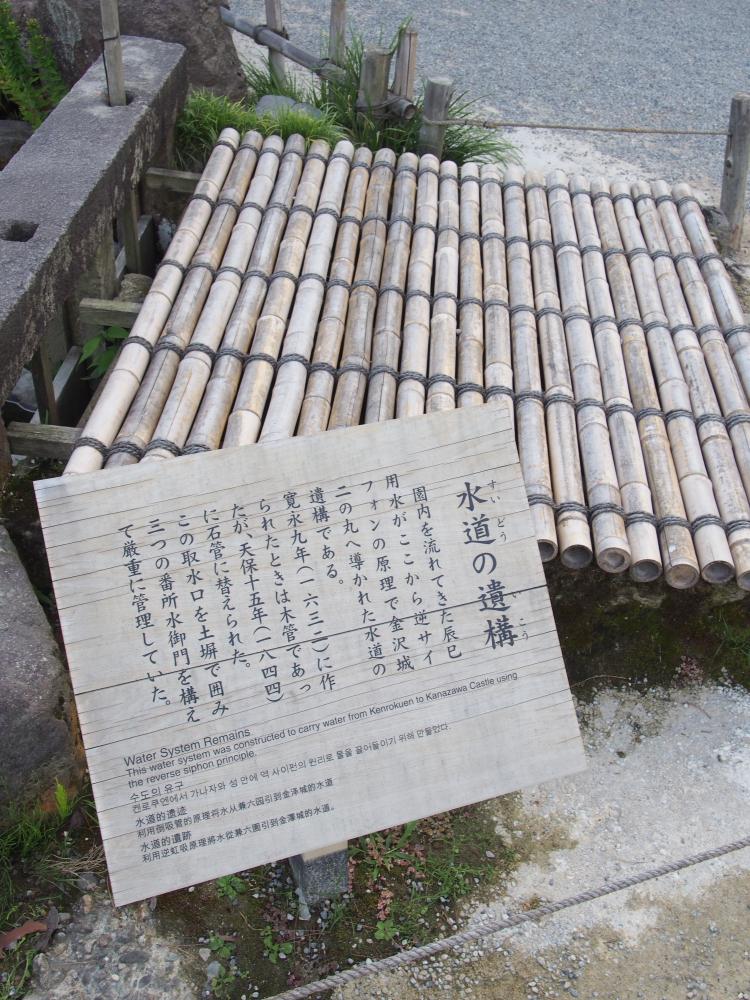 水道の遺構
すいどう
いこう
園内を流れてきた辰巳
用水がここから逆サイ
フォンの原理で金沢城
二の丸へ導かれた水道の
遺構である。
寛永九年(一六三二)に作
られたときは木管であっ
たが、天保十五年(一八四四)
に石管に替えられた。
この取水口を土塀で囲み
三つの番所水御門を構え
て厳重に管理していた。
Water System Remains
This water system was constructed to carry water from Kenrokuen to Kanazawa Castle using
the reverse siphon principle.
수도의 유구
켄로쿠엔에서 가나자와 성 안에 역 사이펀의 원리로 물을 끌어들이기 위해 만들었다.
水道的遗迹
利用倒吸管的原理将水从兼六园引到金泽城的水道
水道的遺跡
利用逆虹吸原理將水從兼六園引到金澤城的水道。